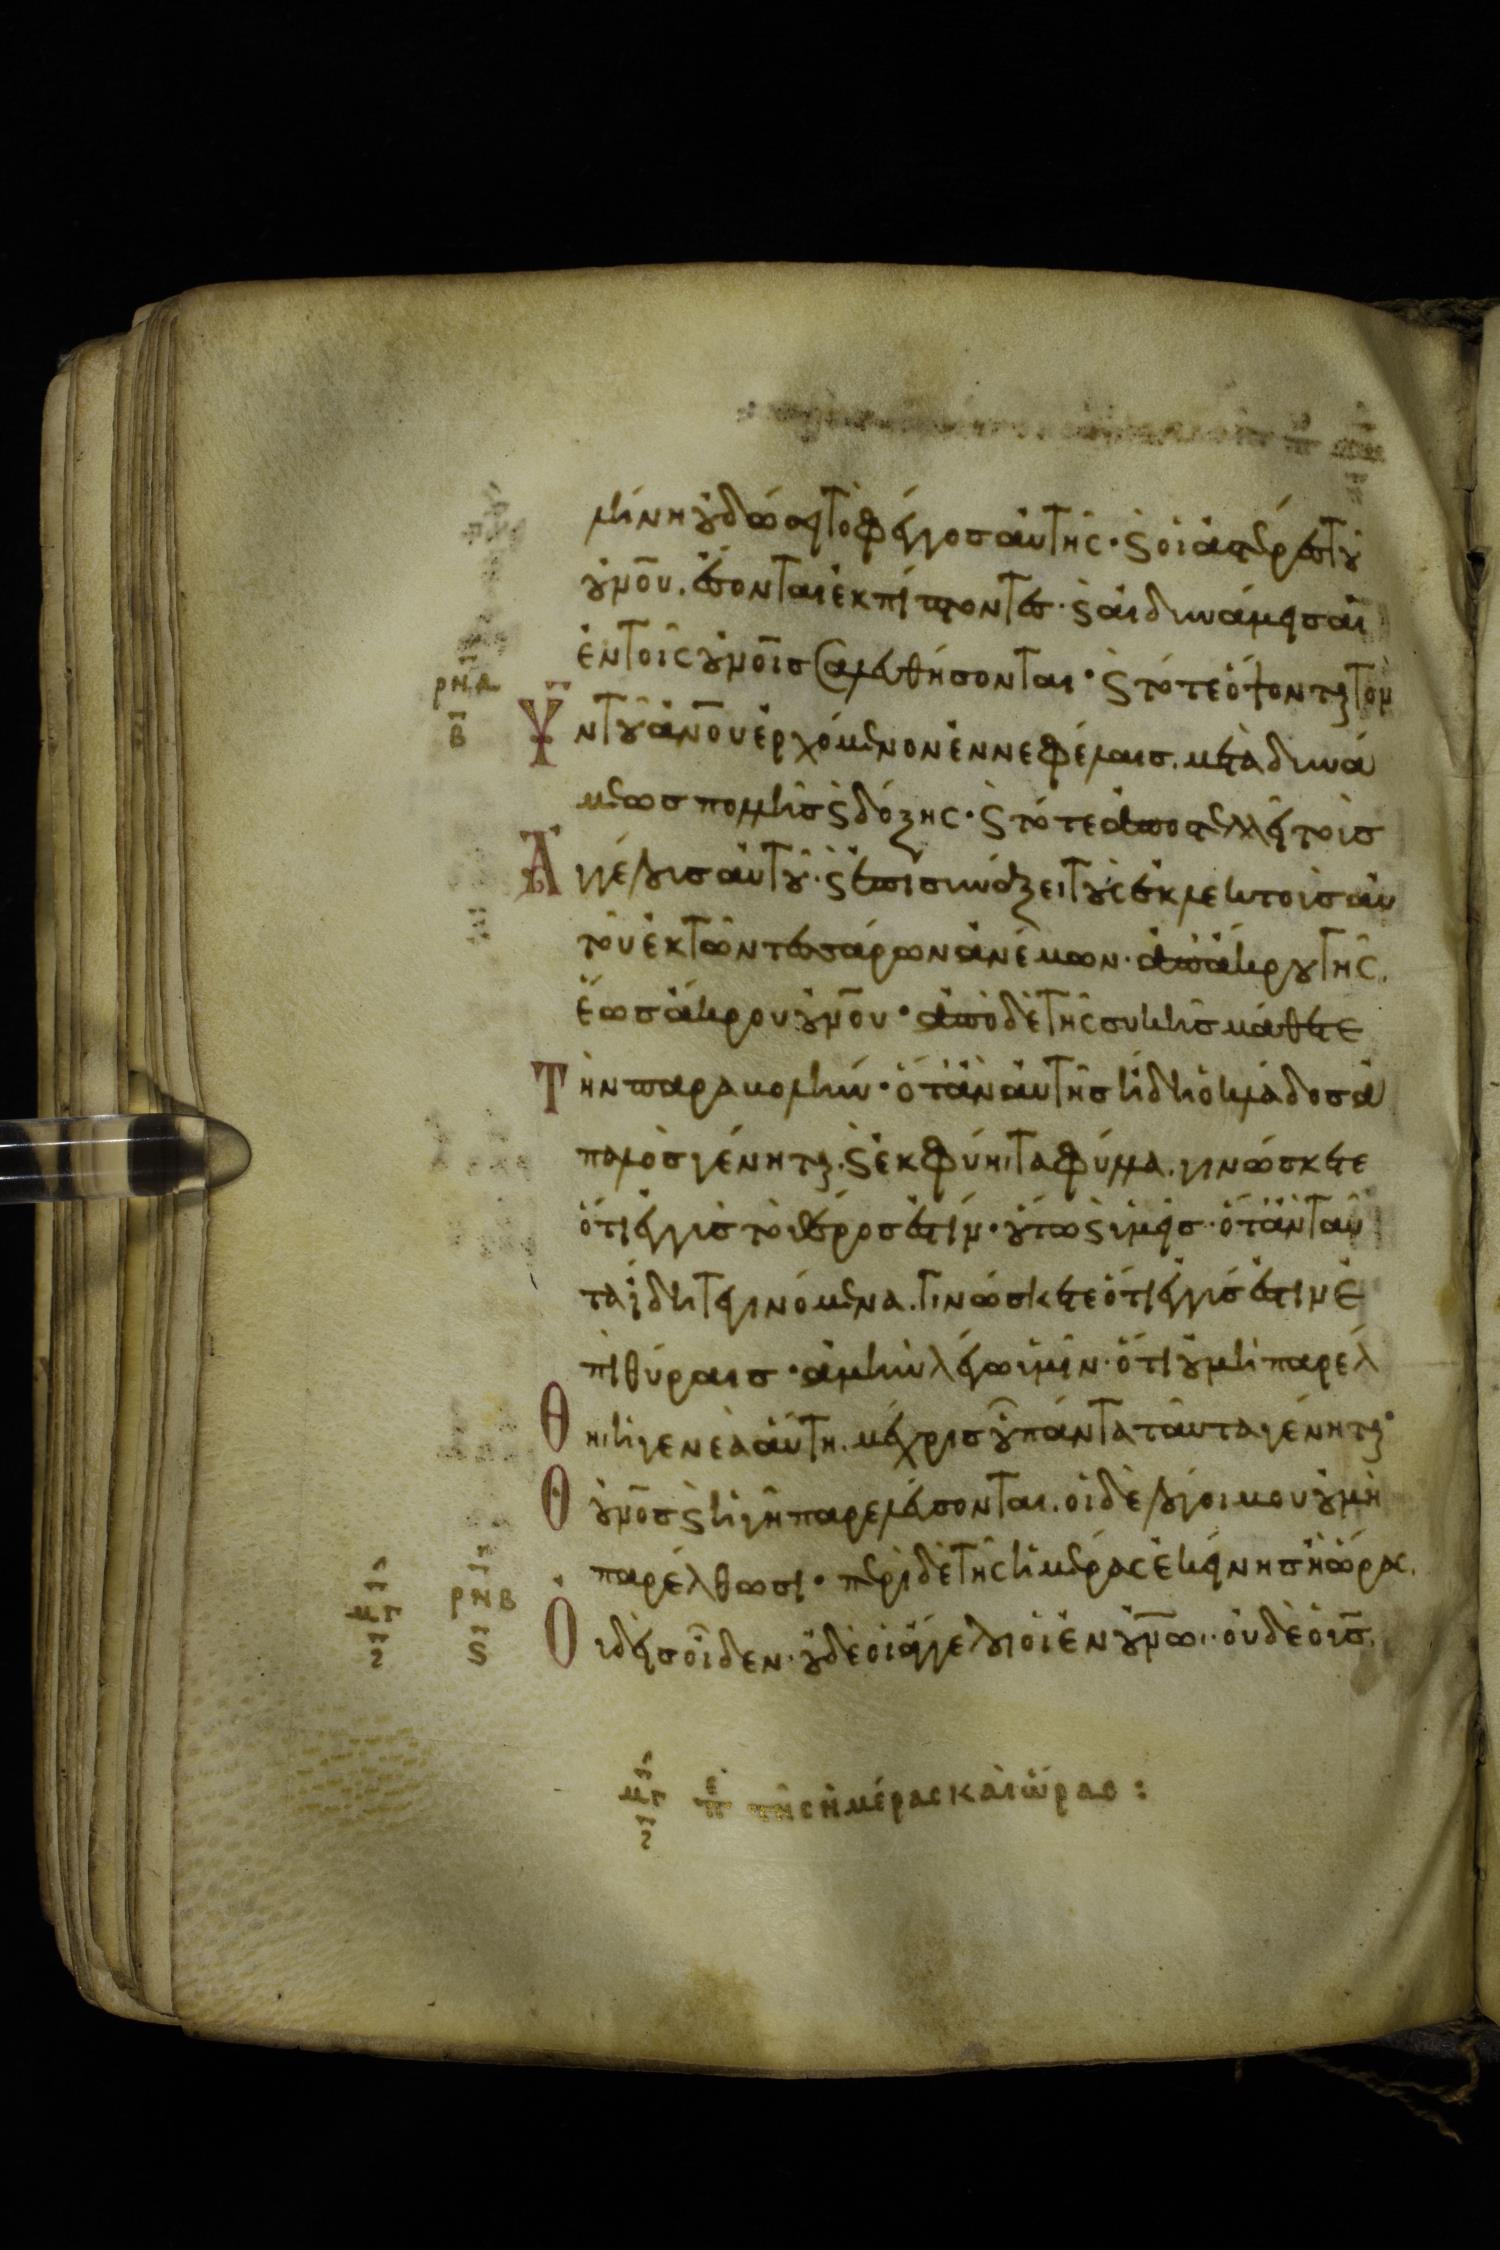 μήνη οὐ δώσει τὸ φέγγος αὐτῆς· ϗ οἱ ἀστέρες τοῦ
οὐνοῦ. ἔσονται ἐκπίπτοντες· ϗ αἱ δυνάμεις αἱ
ἐν τοῖς οὐνοῖς σαλευθήσονται· ϗ τότε ὄψονται τὸν
ῡν τοῦ ἀνοῦ ἐρχόμενον ἐν νεφέλαις. μετὰ δυνά
μεως πολλῆς ϗ δόξης· ϗ τότε ἀποστελλεῖ τοὺς
Ἀγγέλους αὐτοῦ· ϗ ἐπισυνάξει τοὺς ἐκλεκτοὺς αὐ
τοῦ ἐκ τῶν τεσσάρων ἀνέμων· ἀπὸ ἄκρου γῆς.
ἕως ἄκρου οὐνοῦ· ἀπὸ δὲ τῆς συκῆς μάθετε
Τὴν παραβολήν· ὅταν αὐτῆς ἤδη ὁ κλάδος ἁ
παλὸς γένηται. ϗ ἐκφύηι τὰ φύλλα. γινώσκετε
ὅτι ἐγγὺς τὸ θέρος ἐστίν· οὕτω ϗ ὑμεῖς· ὅταν ταῦ
τα ἴδητε γινόμενα. γινώσκετε ὅτι ἐγγύς ἐστιν ἐ
πὶ θύραις· ἀμὴν λέγω ὑμῖν· ὅτι οὐ μὴ παρέλ
Θηι ἡ γενεὰ αὕτη. μέχρις οὗ πάντα ταῦτα γένηται·
Ὁ οὐνὸς ϗ ἡ γῆ παρελεύσονται. οἱ δὲ λόγοι μου οὐ μὴ
παρέλθωσι· περὶ δὲ τῆς ἡμέρας ἐκείνης ἢ ὥρας.
ρνβ
ϛ
μγ
ζ
Οὐδεὶς οἶδεν· οὐδὲ οἱ ἄγγελοι οἱ ἐν οὐνῶι· οὐδὲ ὁ υς.
μγ π τῆς ἡμέρας καὶ ὥρας:
ζ